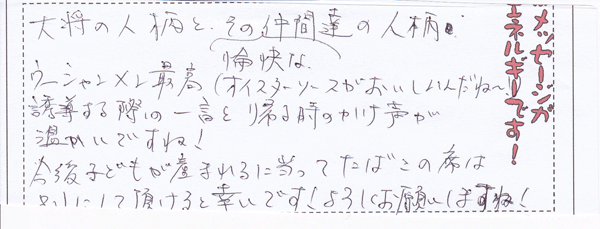 大将の人柄と、その仲間達の人柄!
愉快な
ウーシャンメン最高(オイスターソースがおいしいんだね〜!)
誘導する際の一言と帰る時のかけ声が
温かいですね!
今後子どもが産まれるに当ってたばこの席は
別にして頂けると幸いです!よろしくお願いしますね!
メッセージが
エネルギーです!